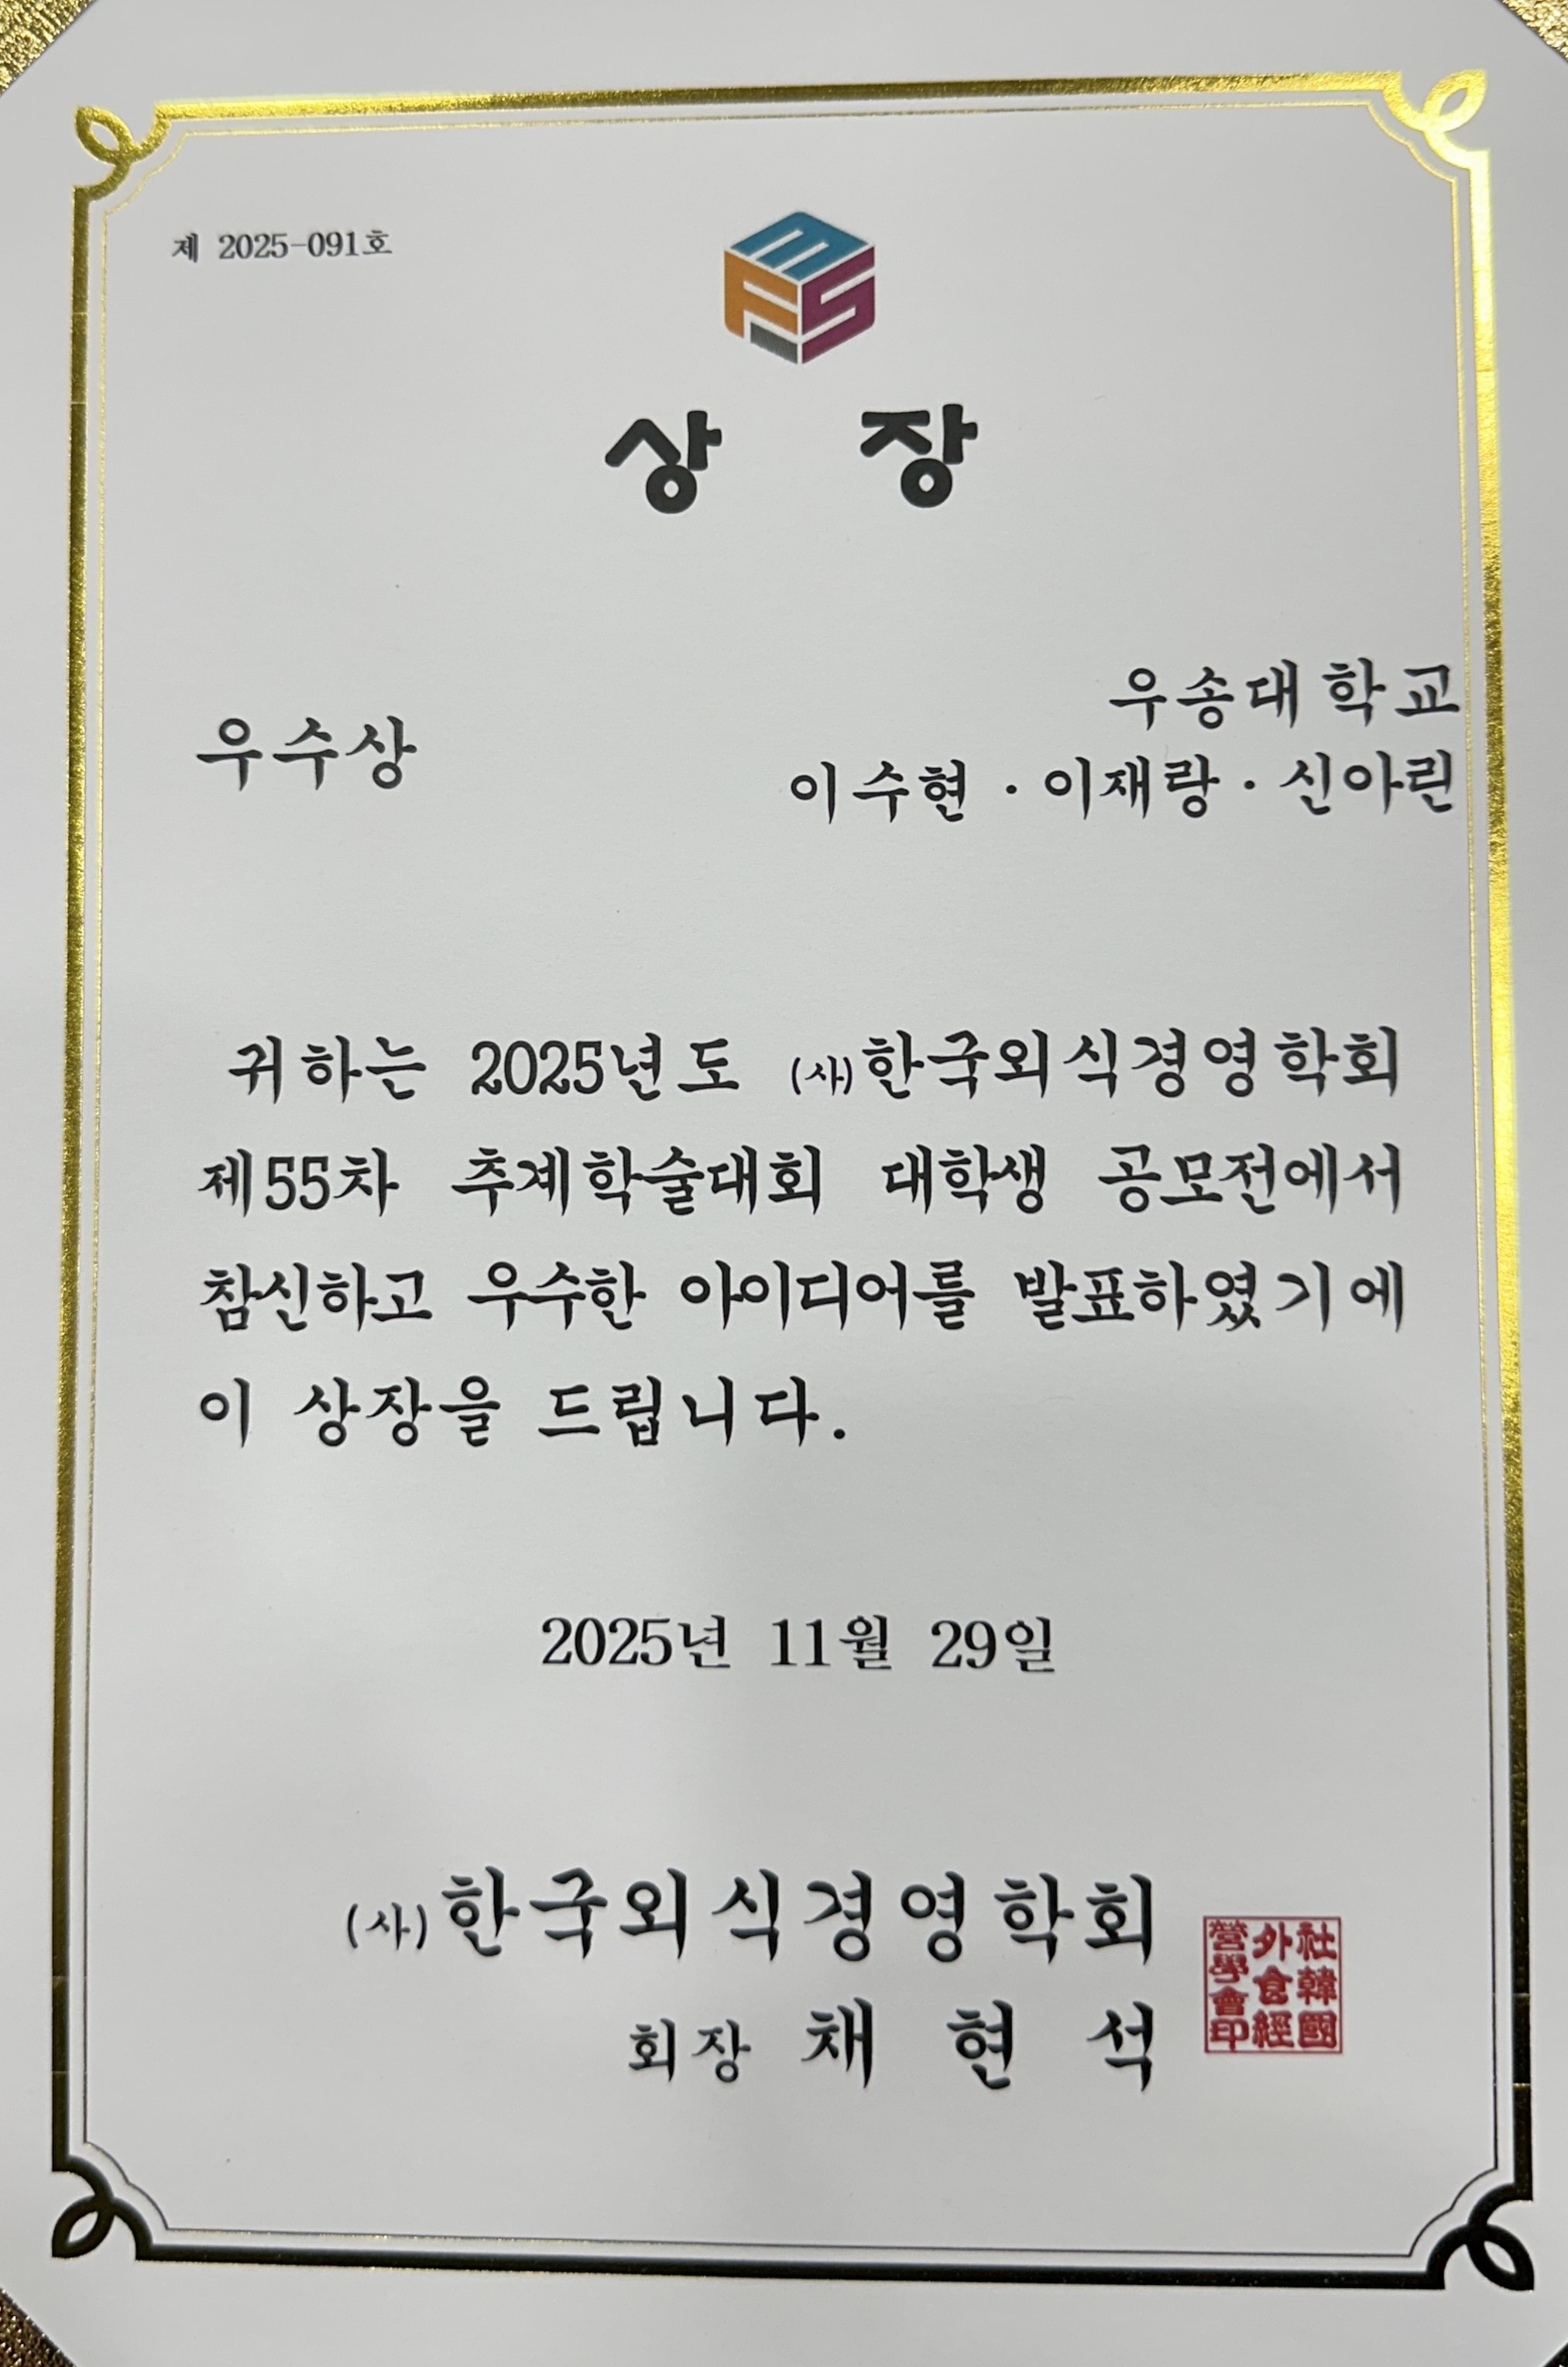 제 2025-091호
MFS
상 장
우수상
우송대학교
이수현 · 이재랑 · 신아린
귀하는 2025년도 (사)한국외식경영학회
제55차 추계학술대회 대학생 공모전에서
참신하고 우수한 아이디어를 발표하였기에
이 상장을 드립니다.
2025년 11월 29일
(사)한국외식경영학회
회장 채 현 석
社韓國
外食經
營學會印